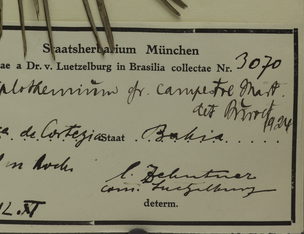 Staatsherbarium München
ae a Dr. v. Luetzelburg in Brasilia collectae Nr. 3070
plothemium fr. campestre Mart.
det Burret
1924
a de Cortezia Staat Bahia
L. Zehntner
com. Luetzelburg
determ.